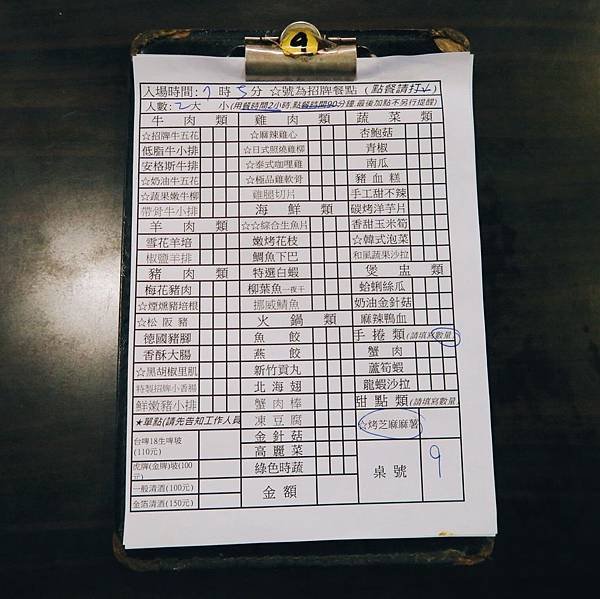 9
入場時間:7 時 5分 ☆號為招牌餐點 (點餐請打✓)
人數:2大 小(用餐時間2小時,點餐時間90分鐘,最後加點不另行提醒)
牛肉類
☆招牌牛五花
低脂牛小排
安格斯牛排
☆奶油牛五花
☆蔬果嫩牛柳
帶骨牛小排
羊肉類
雪花羊培
椒鹽羊排
豬肉類
梅花豬肉
☆煙燻豬培根
☆松阪豬
德國豬腳
香酥大腸
☆黑胡椒里肌
特製招牌小香腸
鮮嫩豬小排
★單點(請先告知工作人員
台啤18生啤坡
(110元)
虎牌(金牌)坡(100
元)
一般清酒(100元)
金箔清酒(150元)
雞肉類
☆麻辣雞心
☆日式照燒雞柳
☆泰式咖哩雞
☆極品雞軟骨
雞腿切片
海鮮類
☆☆綜合生魚片
嫩烤花枝
鯛魚下巴
特選白蝦
柳葉魚一夜干
挪威鯖魚
火鍋類
魚餃
燕餃
新竹貢丸
北海翅
蟹肉棒
凍豆腐
金針菇
高麗菜
綠色時蔬
金額
蔬菜類
杏鮑菇
青椒
南瓜
豬血糕
手工甜不辣
碳烤洋芋片
香甜玉米筍
☆韓式泡菜
和風蔬果沙拉
煲盅類
蛤蜊絲瓜
奶油金針菇
麻辣鴨血
手捲類(請填寫數量)
蟹肉
蘆筍蝦
龍蝦沙拉
甜點類(請填寫數量
☆烤芝麻麻薯
桌號
9